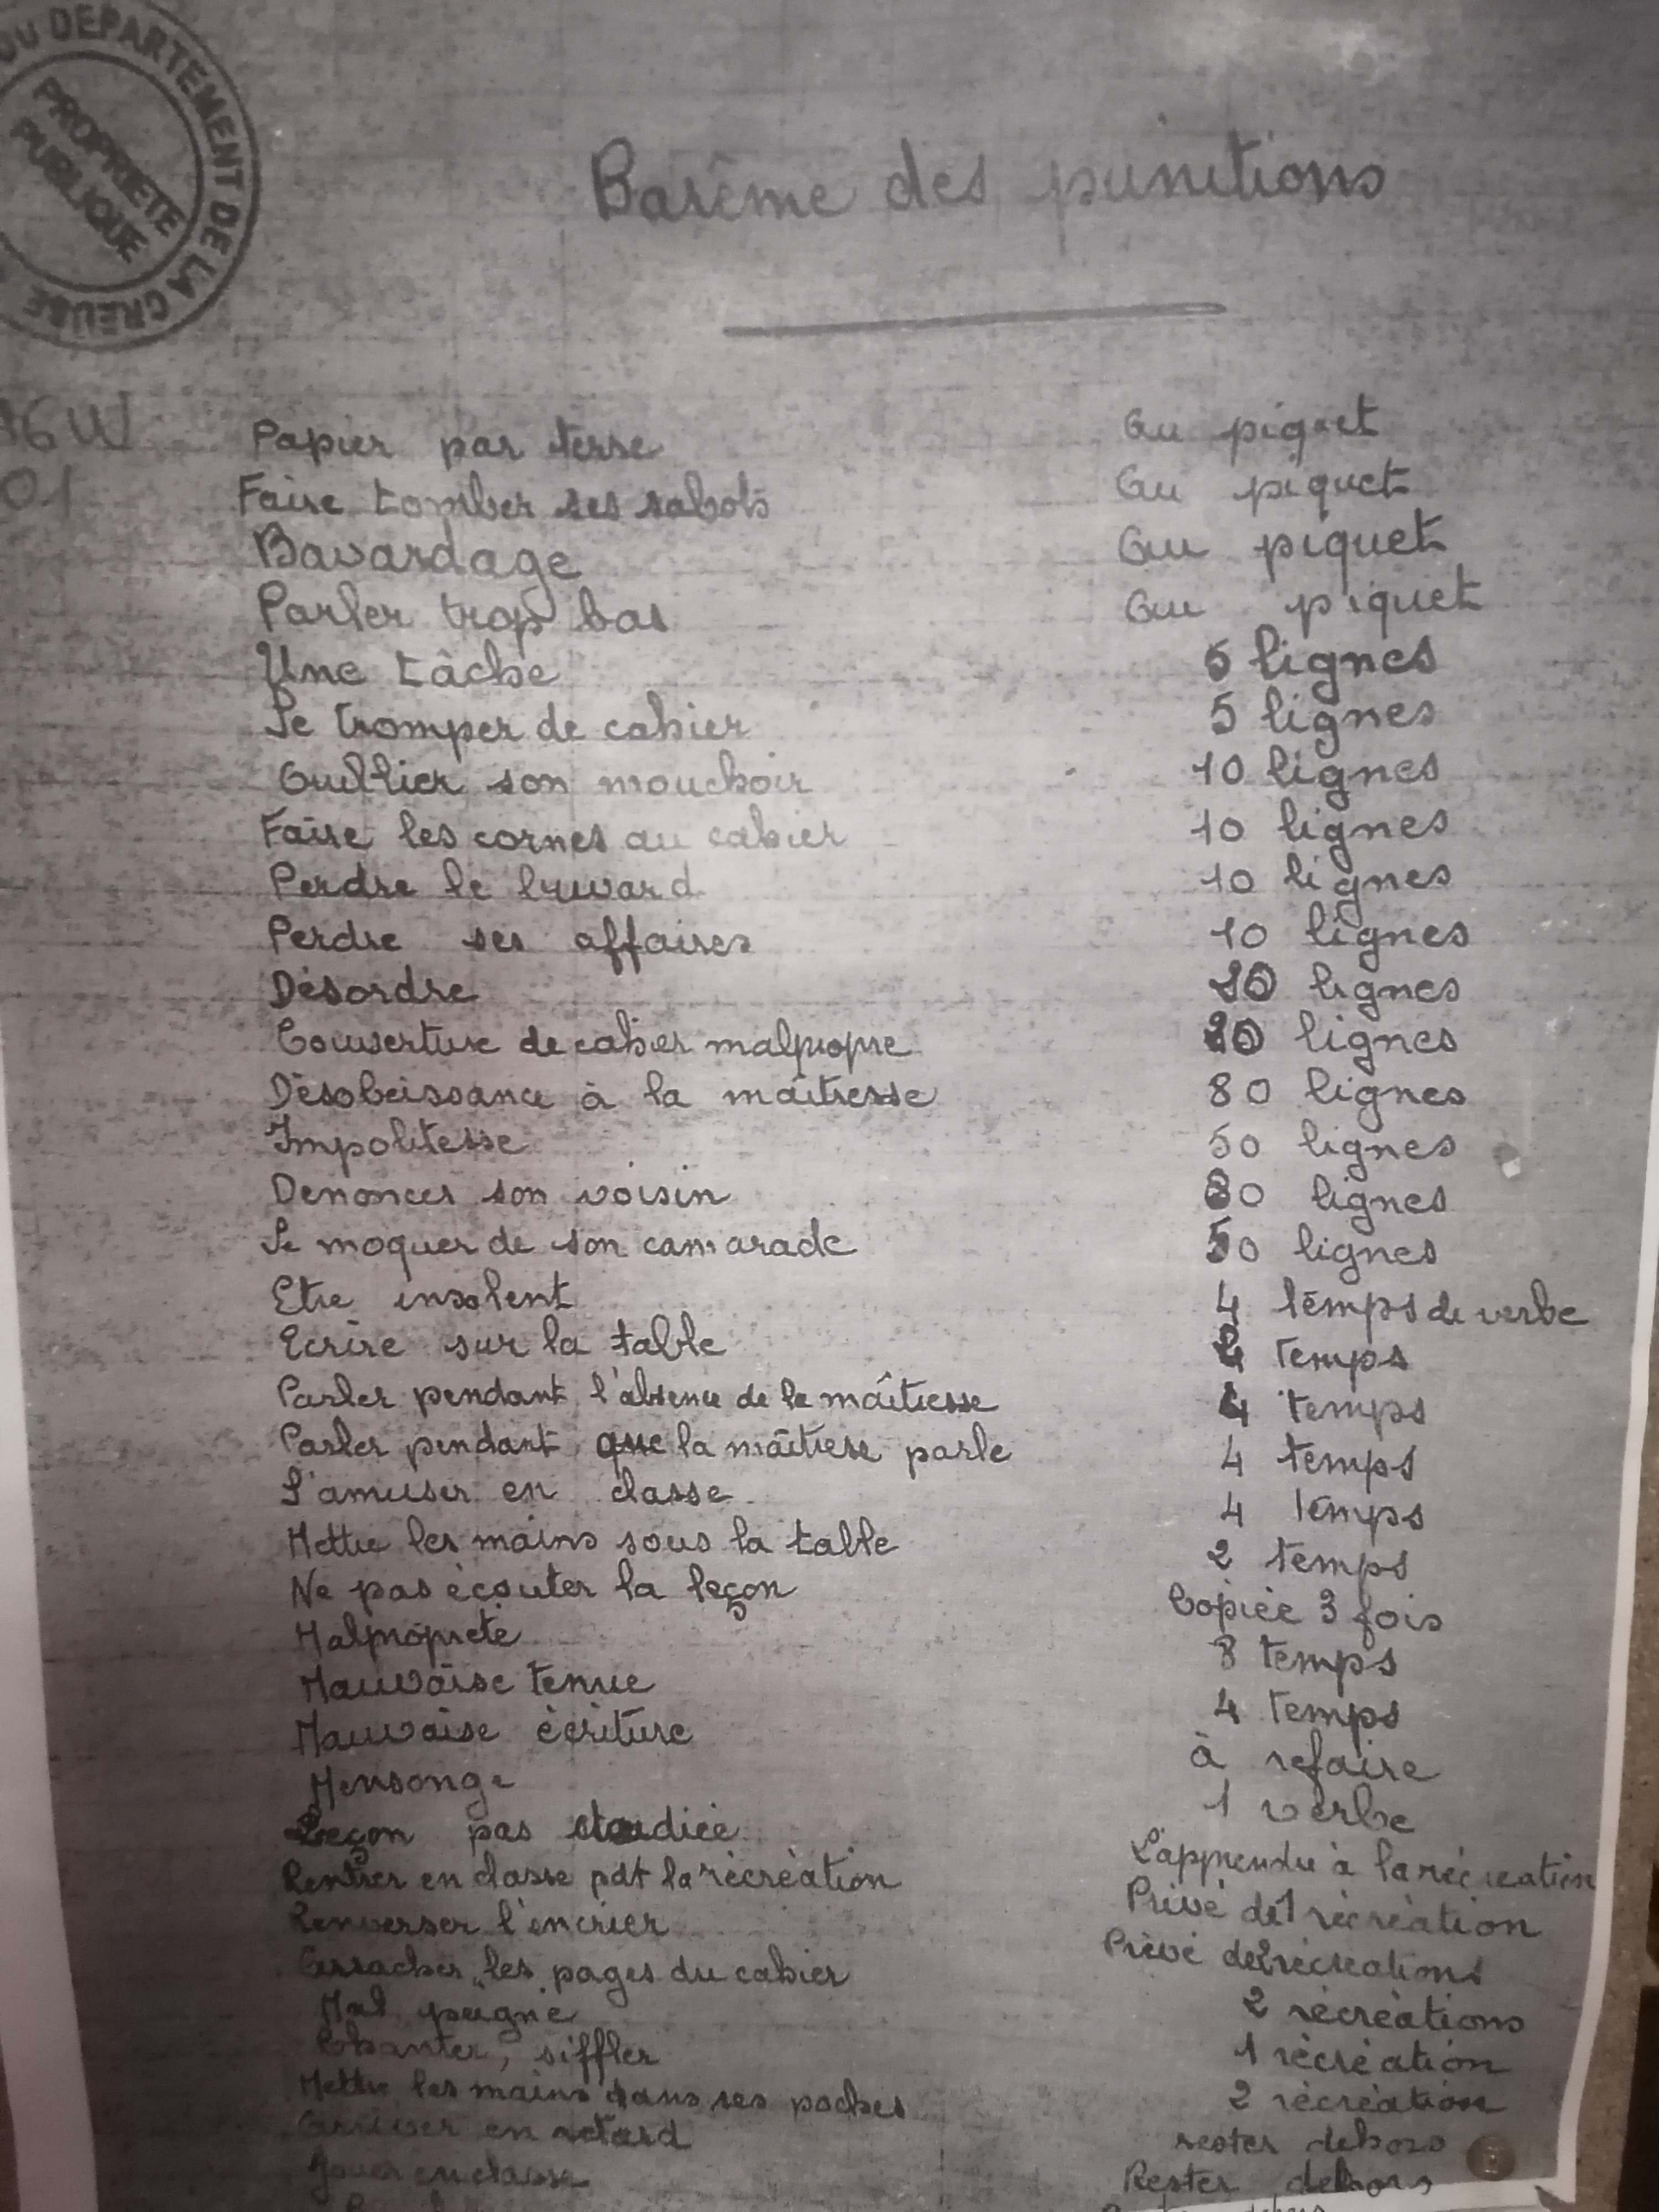 DU DEPARTEMENT DE LA CREUSE
PROPRIETE
PUBLIQUE
Barême des punitions
6W
01
Papier par terre Au piquet
Faire tomber ses sabots Au piquet
Bavardage Au piquet
Parler trop bas Au piquet
Une tâche 5 lignes
Se tromper de cahier 5 lignes
Oublier son mouchoir 10 lignes
Faire les cornes au cahier 10 lignes
Perdre le buvard 10 lignes
Perdre ses affaires 10 lignes
Désordre 20 lignes
Couverture de cahier malpropre 20 lignes
Désobeissance à la maîtresse 80 lignes
Impolitesse 50 lignes
Denoncer son voisin 80 lignes
Se moquer de son camarade 50 lignes
Etre insolent 4 temps de verbe
Ecrire sur la table temps
Parler pendant l'absence de la maîtresse 4 temps
Parler pendant que la maîtresse parle 4 temps
S'amuser en classe 4 temps
Mettre les mains sous la table 2 temps
Ne pas écouter la leçon Copiée 3 fois
Malpropreté 8 temps
Mauvaise tenue 4 temps
Mauvaise écriture à refaire
Mensonge 1 verbe
Leçon pas etudiée L'apprendre à la récréation
Rentrer en classe pdt la récréation Privé de 1 récréation
Renverser l'encrier Privé de 2 récréations
Arracher les pages du cahier 2 récréations
Mal peigné 1 récréation
Chanter, siffler 2 récréation
Mettre les mains dans ses poches rester dehors
Arriver en retard Rester dehors
Jouer en classe